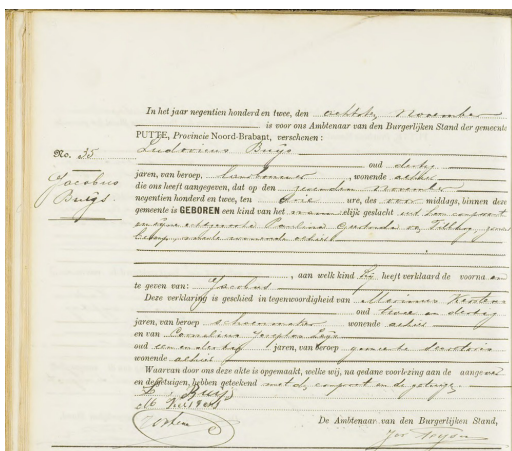 In het jaar negentien honderd en twee, den achtsten November
is voor ons Ambtenaar van den Burgerlijken Stand der gemeente
PUTTE, Provincie Noord-Brabant, verschenen :
No. 35
Ludovicus Buijs
oud dertig
Jacobus
Buijs.
jaren, van beroep, landbouwer, wonende alhier
die ons heeft aangegeven, dat op den zevenden November
negentien honderd en twee, ten drie ure, des voor middags, binnen deze
gemeente is GEBOREN een kind van het mannelijk geslacht uit hem comparant
en zijne echtgenoote Paulina
beroep, alhier
, aan welk kind hij heeft verklaard de voorna am
te geven van: Jacobus
Deze verklaring is geschied in tegenwoordigheid van Marinus
oud twee en dertig
jaren, van beroep schoenmaker wonende alhier
en van Cornelius Josephus
oud een en dertig jaren, van beroep gemeente secretaris
wonende alhier
Waarvan door ons deze akte is opgemaakt, welke wij, na gedane voorlezing aan de aangever
en de getuigen, hebben geteekend met de comparant en de getuigen.
L. Buijs
De Ambtenaar van den Burgerlijken Stand,